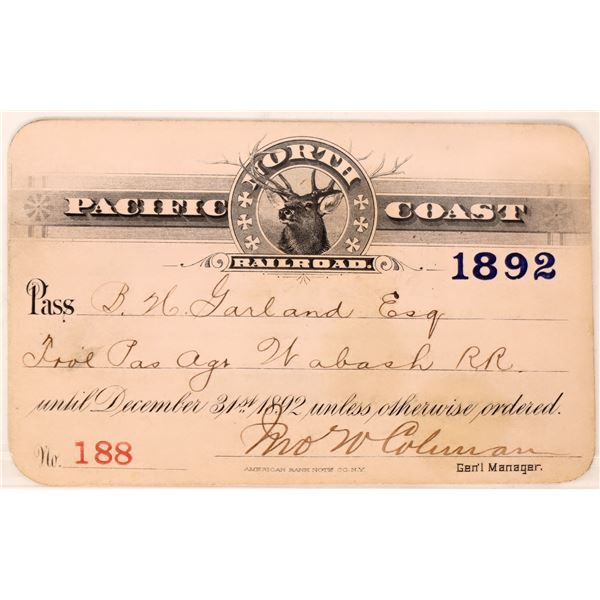 NORTH
PACIFIC COAST
RAILROAD.
1892
Pass B. H. Garland Esq
Trvl Pas Agt Wabash RR.
until December 31st 1892, unless otherwise ordered.
No. 188
Jno W Coleman
AMERICAN BANK NOTE CO. N.Y.
Gen'l Manager.